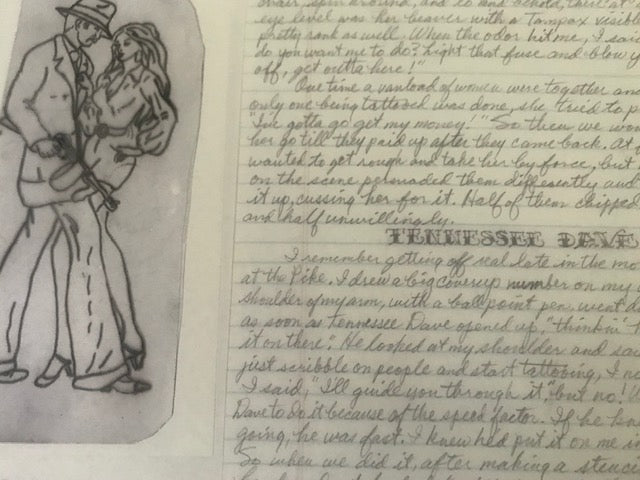 chair, spin around, and lo and behold, there at
eye level was her beaver with a Tampax visible
pretty rank as well. When the odor hit me, I said
do you want me to do? Light that fuse and blow y
off, get outta here!"
One time a vanload of women were together and
only one being tattooed was done, she tried to p
"I've gotta go get my money!" So then we won
her go till they paid up after they came back. At f
wanted to get rough and take her by force, but
on the scene persuaded them differently and
it up, cussing her for it. Half of them chipped
and half unwillingly.
TENNESSEE DAVE
I remember getting off real late in the mo
at the Pike. I drew a big coverup number on my
shoulder of my arm, with a ball point pen. went d
as soon as Tennessee Dave opened up, "thinkin'
it on there". He looked at my shoulder and sa
just scribble on people and start tattooing, I n
I said, "I'll guide you through it", but no!
Dave to do it because of the speed factor. If he
going, he was fast. I knew he'd put it on me in
So when we did it, after making a stenci